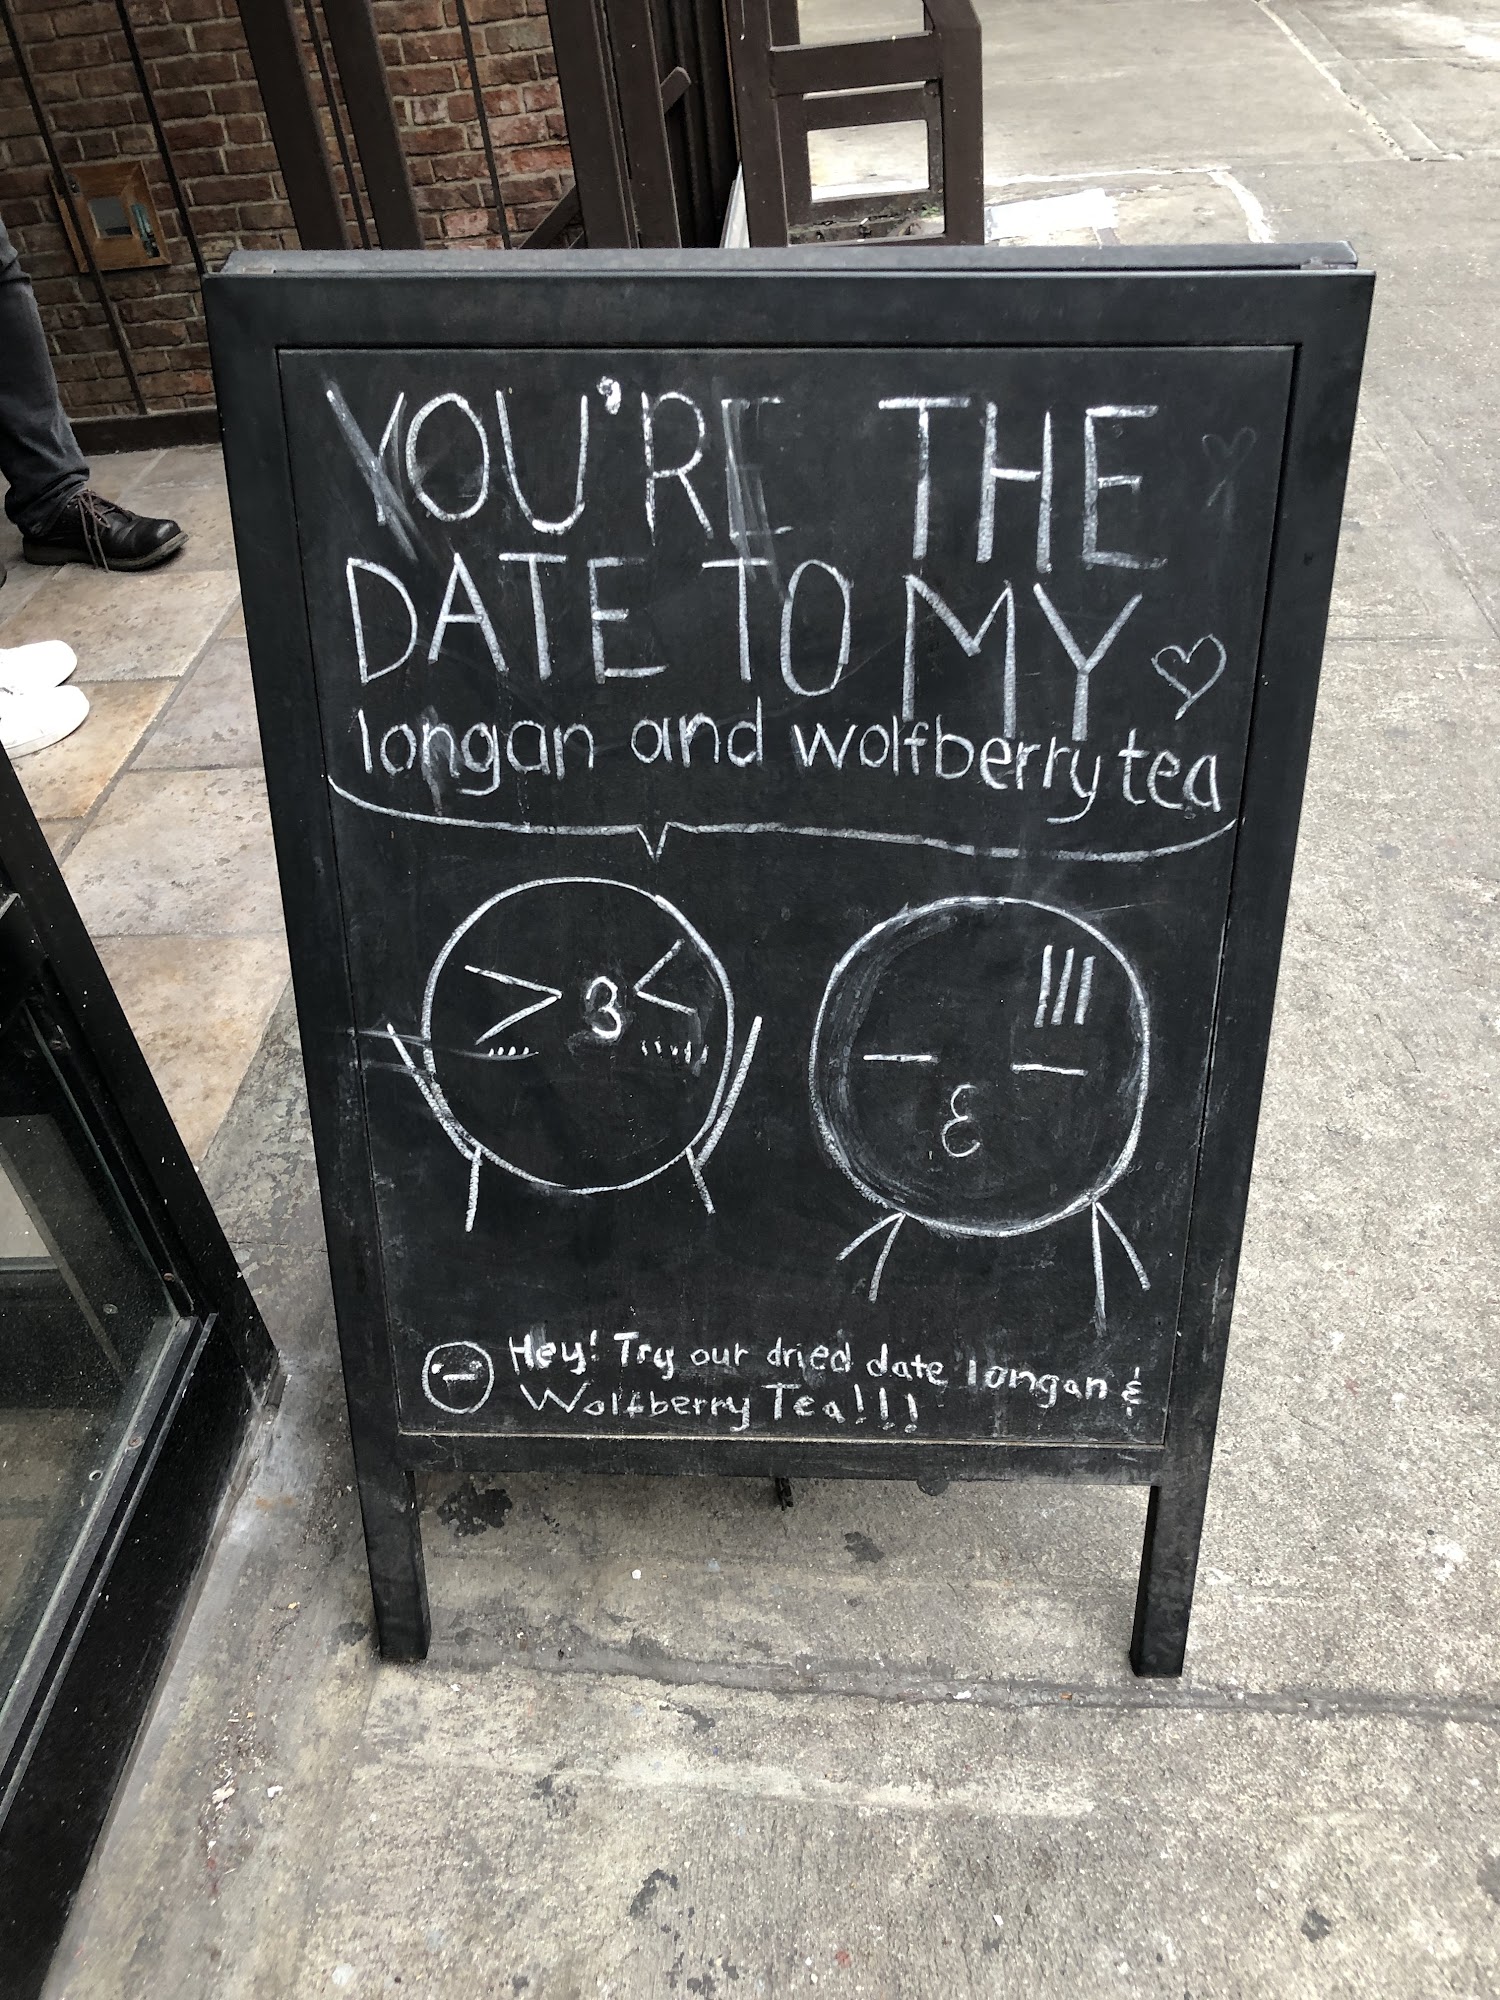 YOU'RE THE
DATE TO MY
longan and wolfberry tea
Hey! Try our dried date longan &
Wolfberry Tea!!!